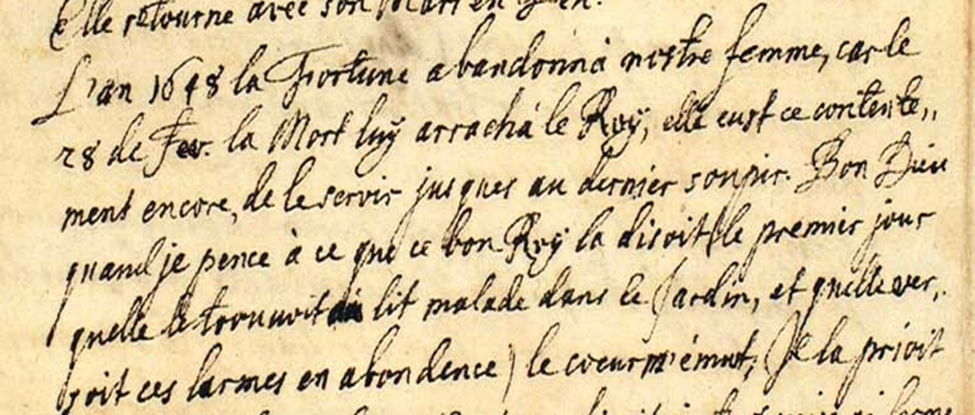 Elle retourne avec son Mari en
L'an 1648 la Fortune abandonna nostre femme, car le
28 de Fev. la Mort luy arracha le Roy, elle eust ce contente,,
ment encore, de le servir jusques au dernier soupir. Bon Dieu
quand je pence à ce que ce bon Roy la disoit (le premier jour
quelle le trouuvit au lit malade dans le Jardin, et quelle ver,,
soit ces larmes en abondence) le coeur m'émut, Je la prioit